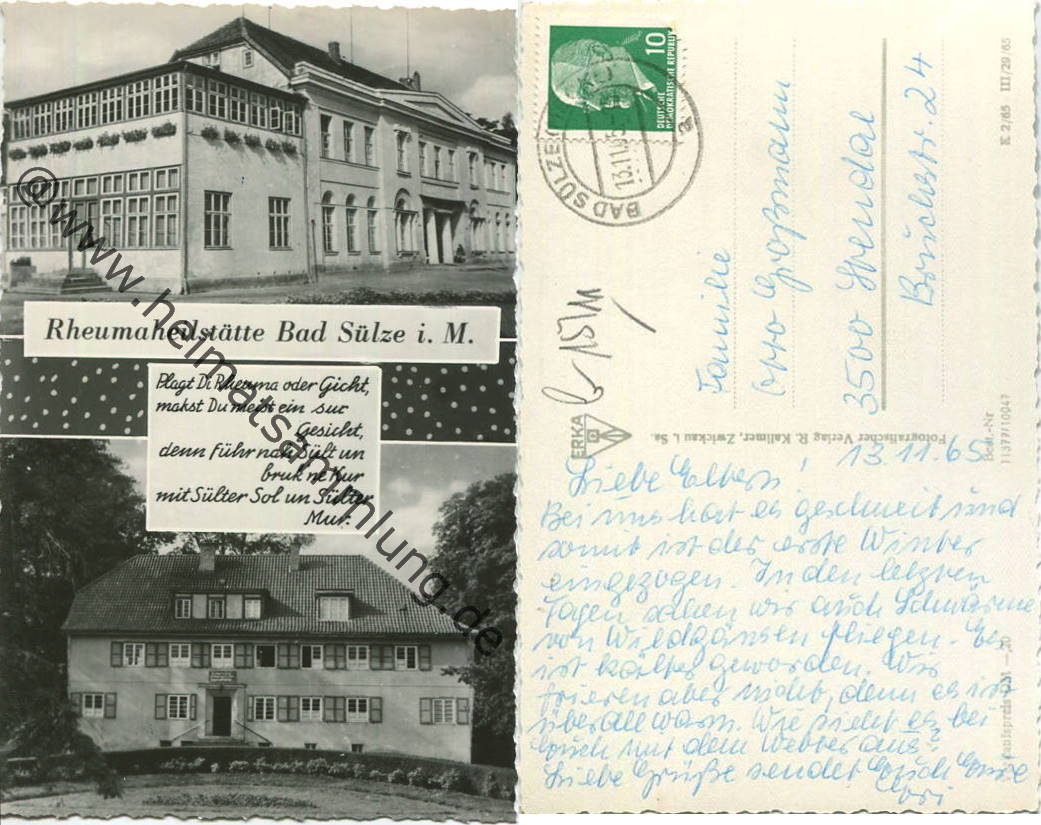 Rheumaheilstätte Bad Sülze i. M.
Plagt Di Rheuma oder Gicht,
makst Du meist ein sur
Gesicht,
denn führ nah Sült un
bruk ne Kur
mit Sülter Sol un Sülter
Mur.
@www.heimatsammlung.de
10
DEUTSCHE
DEMOKRATISCHE REPUBLIK
BAD SÜLZE
13.11.65
a
Familie
Otto Großmann
3500 Stendal
Bruchstr. 24
K 2/65 III/29/65
ERKA
Fotografischer Verlag R. Kallmer, Zwickau i. Sa.
Best.-Nr
11577/10047
13.11.65
Liebe Eltern!
Bei uns hat es geschneit und
somit ist der erste Winter
eingezogen. In den letzten
Tagen sehen wir auch Schwärme
von Wildgänsen fliegen. Es
ist kälter geworden. Wir
frieren aber nicht, denn es ist
überall warm. Wie sieht es bei
Euch mit dem Wetter aus?
Liebe Grüße sendet Euch Eure